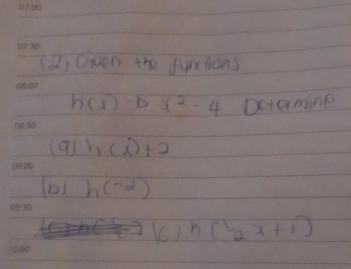 07:00
07:30
(2) Given the functions
08:00
h(x) → x² - 4 Determine
08:30
(a) h(x)+2
09:00
(b) h(-2)
09:30
(c) h(½x+1)
10:00